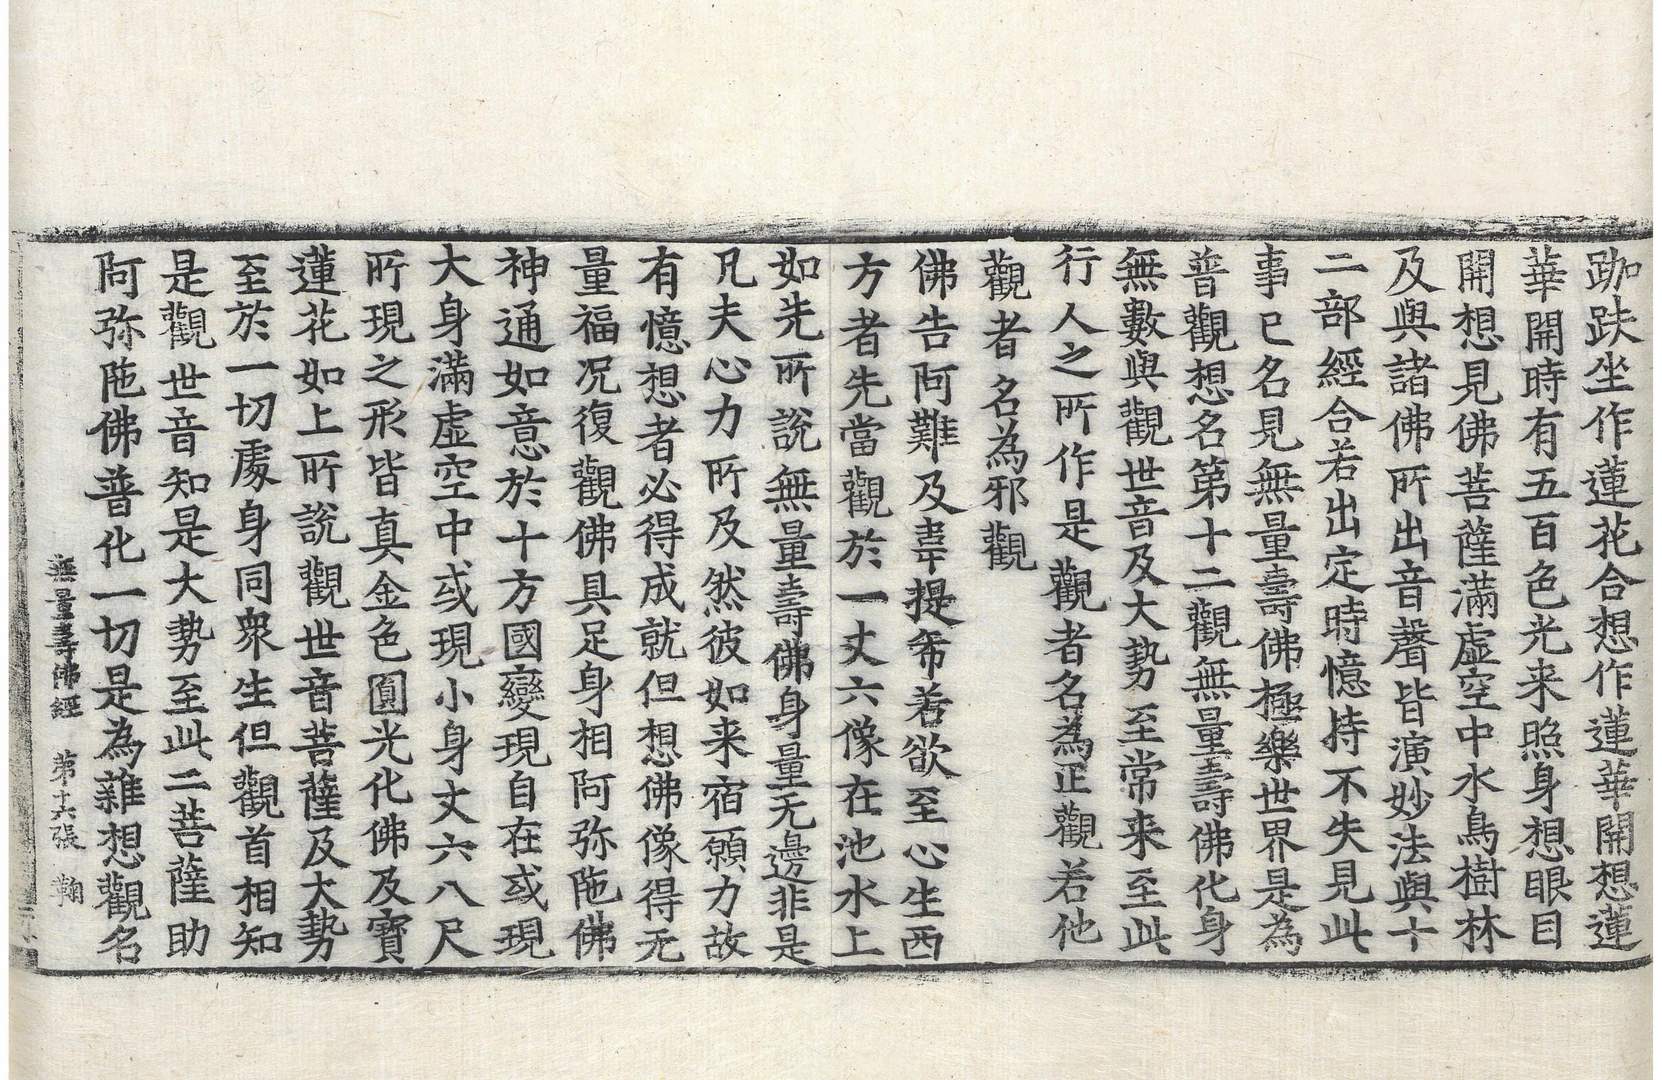 跏趺坐作蓮花合想作蓮華開想蓮
華開時有五百色光来照身想眼目
開想見佛菩薩滿虛空中水鳥樹林
及與諸佛所出音聲皆演妙法與十
二部經合若出定時憶持不失見此
事已名見無量壽佛極樂世界是為
普觀想名第十二觀無量壽佛化身
無數與觀世音及大勢至常来至此
行人之所作是觀者名為正觀若他
觀者名為邪觀
佛告阿難及韋提希若欲至心生西
方者先當觀於一丈六像在池水上
如先所說無量壽佛身量无邊非是
凡夫心力所及然彼如来宿願力故
有憶想者必得成就但想佛像得无
量福况復觀佛具足身相阿弥陁佛
神通如意於十方國變現自在或現
大身滿虛空中或現小身丈六八尺
所現之形皆真金色圓光化佛及寶
蓮花如上所說觀世音菩薩及大勢
至於一切處身同衆生但觀首相知
是觀世音知是大勢至此二菩薩助
阿弥陁佛普化一切是為雜想觀名
無量壽佛經 第十六張 鞠